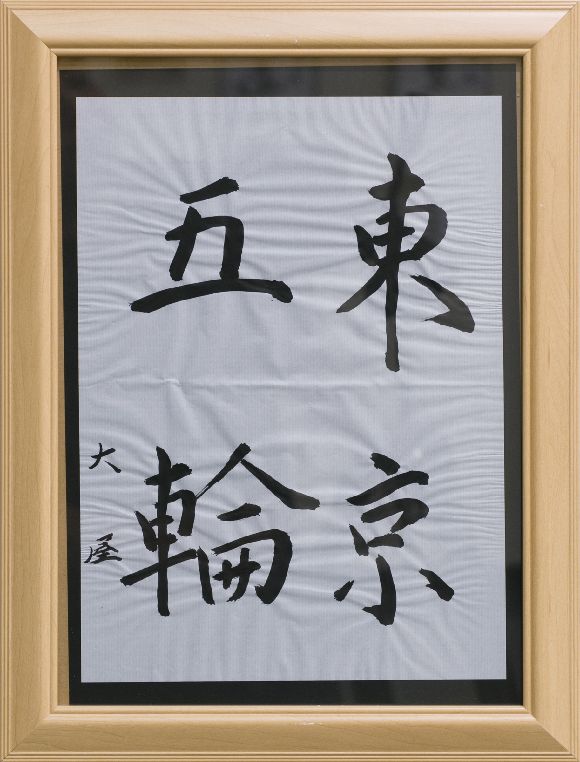 東京
五輪
大屋